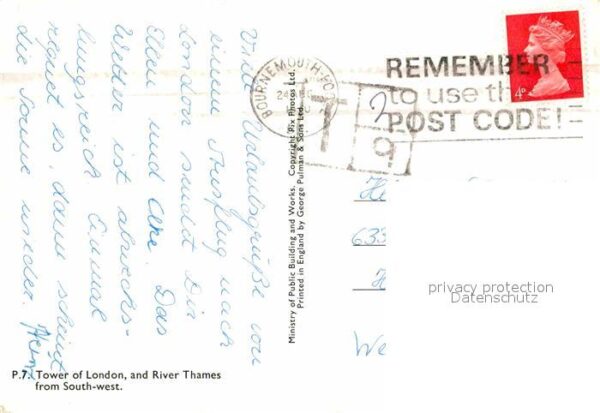 Viele Urlaubsgrüße von
einem Ausflug nach
London sendet Dir
Ellen und Uke. Das
Wetter ist abwechs-
lungsreich Einmal
regnet es, dann scheint
die Sonne wieder.
P.7. Tower of London, and River Thames
from South-west.
Ministry of Public Building and Works. Copyright Pix Photos Ltd.
Printed in England by George Pulman & Sons Ltd.
BOURNEMOUTH-POOLE
24
REMEMBER
to use the
POST CODE!
4D
T
9
633
We
privacy protection
Datenschutz